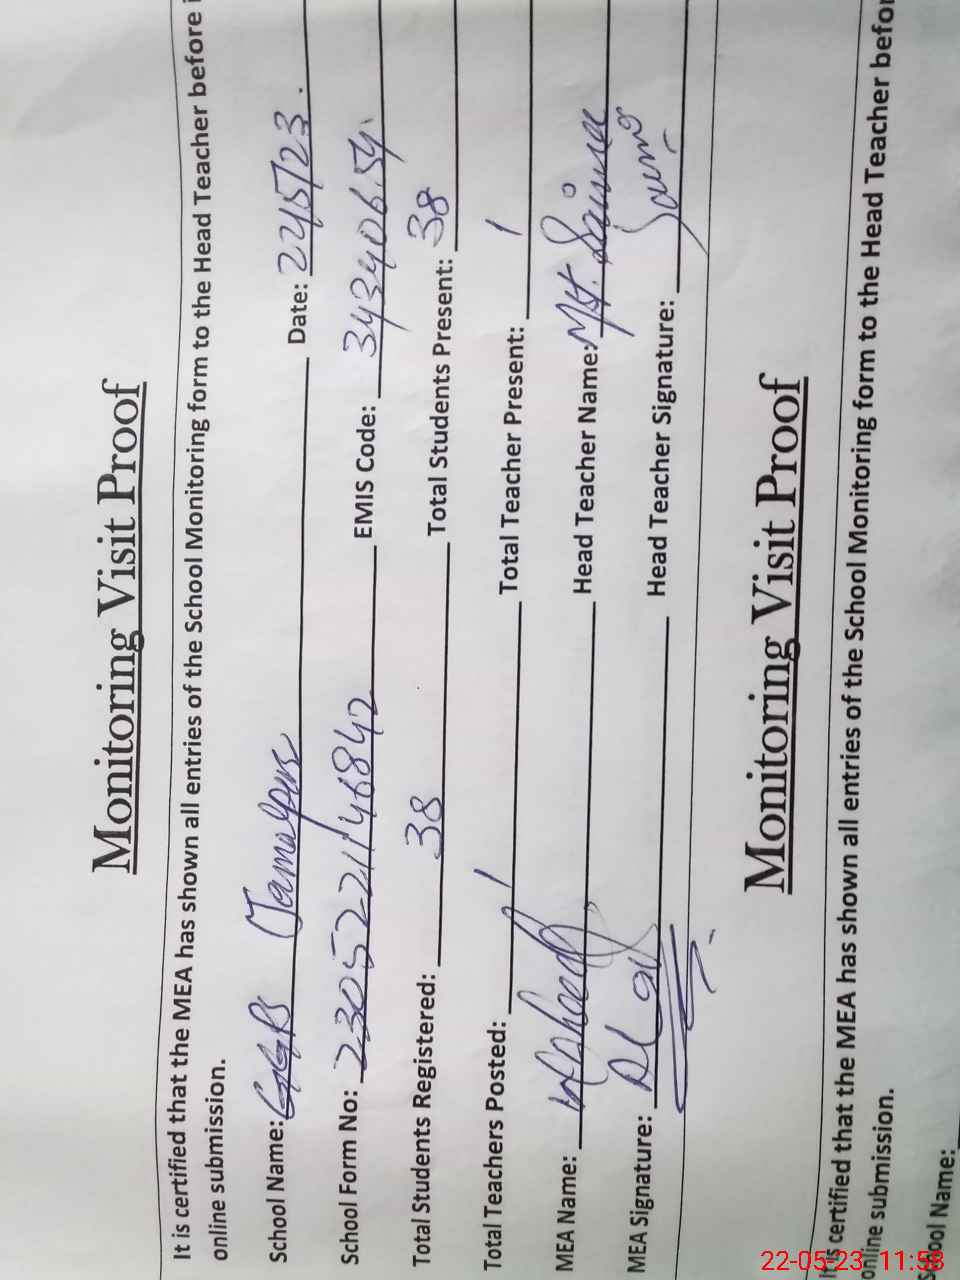 Monitoring Visit Proof
It is certified that the MEA has shown all entries of the School Monitoring form to the Head Teacher before
online submission.
School Name: GGPS Jamalpur Date: 22/5/23.
School Form No: 2305221146842 EMIS Code: 34340654
Total Students Registered: 38 Total Students Present: 38
Total Teachers Posted: 1 Total Teacher Present: 1
MEA Name: Head Teacher Name: Mst. Saima
MEA Signature: Head Teacher Signature: Saima
Monitoring Visit Proof
It is certified that the MEA has shown all entries of the School Monitoring form to the Head Teacher before
online submission.
School Name:
22-05-23 11:58